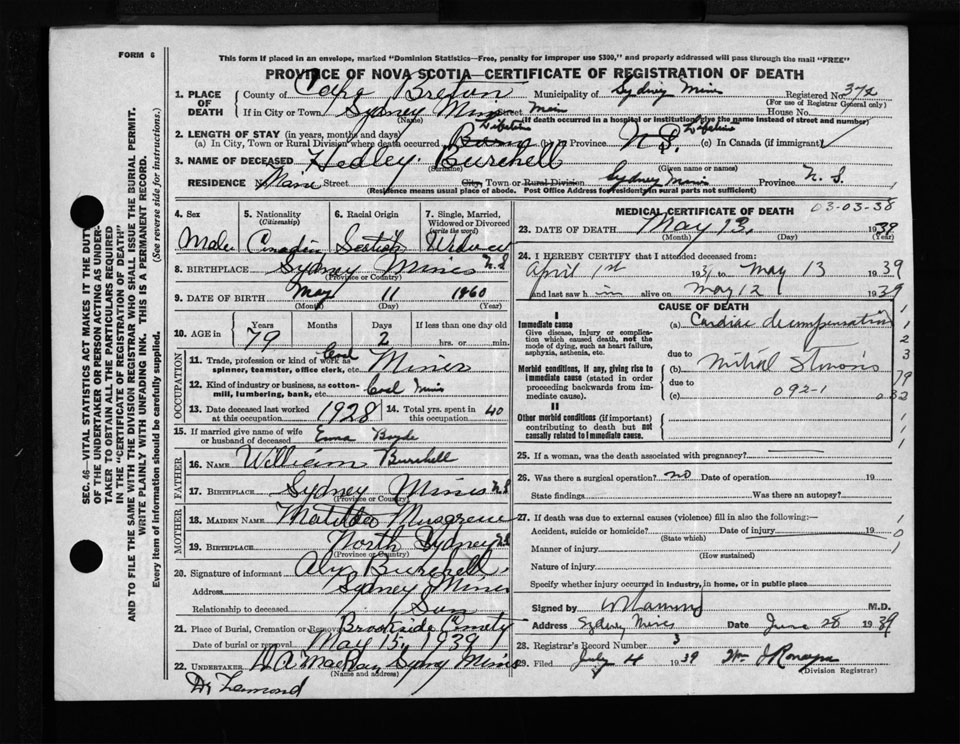 FORM 6
This form if placed in an envelope, marked "Dominion Statistics—Free, penalty for improper use $300," and properly addressed will pass through the mail "FREE"
PROVINCE OF NOVA SCOTIA—CERTIFICATE OF REGISTRATION OF DEATH
1. PLACE OF DEATH County of Cape Breton Municipality of Sydney Mines Registered No. 372
(For use of Registrar General only)
If in City or Town Sydney Mines Street Main House No.
(Name) (If death occurred in a hospital or institution, give the name instead of street and number)
2. LENGTH OF STAY (in years, months and days)
(a) In City, Town or Rural Division where death occurred Lifetime (b) In Province N S. Lifetime (c) In Canada (if immigrant)
3. NAME OF DECEASED Hedley Burchell
(Surname) (Given name or names)
RESIDENCE Main Street City, Town or Rural Division Sydney Mines Province N. S.
(Residence means usual place of abode. Post Office Address for residents in rural parts not sufficient)
4. Sex 5. Nationality (Citizenship) 6. Racial Origin 7. Single, Married, Widowed or Divorced (write the word)
Male Canadian Scotish
8. BIRTHPLACE Sydney Mines N.S
(Province or Country)
9. DATE OF BIRTH May 11 1860
(Month) (Day) (Year)
10. AGE in Years Months Days If less than one day old
79 2 hrs. or min.
OCCUPATION
11. Trade, profession or kind of work as spinner, teamster, office clerk, etc. Coal Miner
12. Kind of industry or business, as cotton-mill, lumbering, bank, etc. Coal Mines
13. Date deceased last worked at this occupation 1928 14. Total yrs. spent in this occupation 40
15. If married give name of wife or husband of deceased Emma Boyde
FATHER
16. NAME William Burchell
17. BIRTHPLACE Sydney Mines N.S
(Province or Country)
MOTHER
18. MAIDEN NAME Matilda Musgrave
19. BIRTHPLACE North Sydney N.S
(Province or Country)
20. Signature of informant Alex Burchell
Address Sydney Mines
Relationship to deceased Son
21. Place of Burial, Cremation or Removal Brookside Cemetry
Date of burial or removal May 15, 1939
22. UNDERTAKER Sydney Mines
(Name and address)
MEDICAL CERTIFICATE OF DEATH 03-03-38
23. DATE OF DEATH May 13, 1939
(Month) (Day) (Year)
24. I HEREBY CERTIFY that I attended deceased from:
April 1st 193 to May 13 1939
and last saw him alive on May 12 1939
CAUSE OF DEATH
I
Immediate cause
Give disease, injury or complication which caused death, not the mode of dying, such as heart failure, asphyxia, asthenia, etc.
(a) Cardiac decompensation
due to
Morbid conditions, if any, giving rise to immediate cause (stated in order proceeding backwards from immediate cause).
(b) Mitral Stenosis
due to
(c) 092-1
II
Other morbid conditions (if important) contributing to death but not causally related to immediate cause.
25. If a woman, was the death associated with pregnancy?
26. Was there a surgical operation? no Date of operation 19
State findings Was there an autopsy?
27. If death was due to external causes (violence) fill in also the following:—
Accident, suicide or homicide? Date of injury 19
(State which)
Manner of injury
(How sustained)
Nature of injury
Specify whether injury occurred in industry, in home, or in public place
Signed by M.D.
Address Sydney Mines Date June 28 1939
28. Registrar's Record Number 3
29. Filed July 4 1939
(Division Registrar)
SEC. 46—VITAL STATISTICS ACT MAKES IT THE DUTY OF THE UNDERTAKER OR PERSON ACTING AS UNDERTAKER TO OBTAIN ALL THE PARTICULARS REQUIRED IN THE "CERTIFICATE OF REGISTRATION OF DEATH" AND TO FILE THE SAME WITH THE DIVISION REGISTRAR WHO SHALL ISSUE THE BURIAL PERMIT.
WRITE PLAINLY WITH UNFADING INK. THIS IS A PERMANENT RECORD.
Every item of information should be carefully supplied. (See reverse side for instructions.)